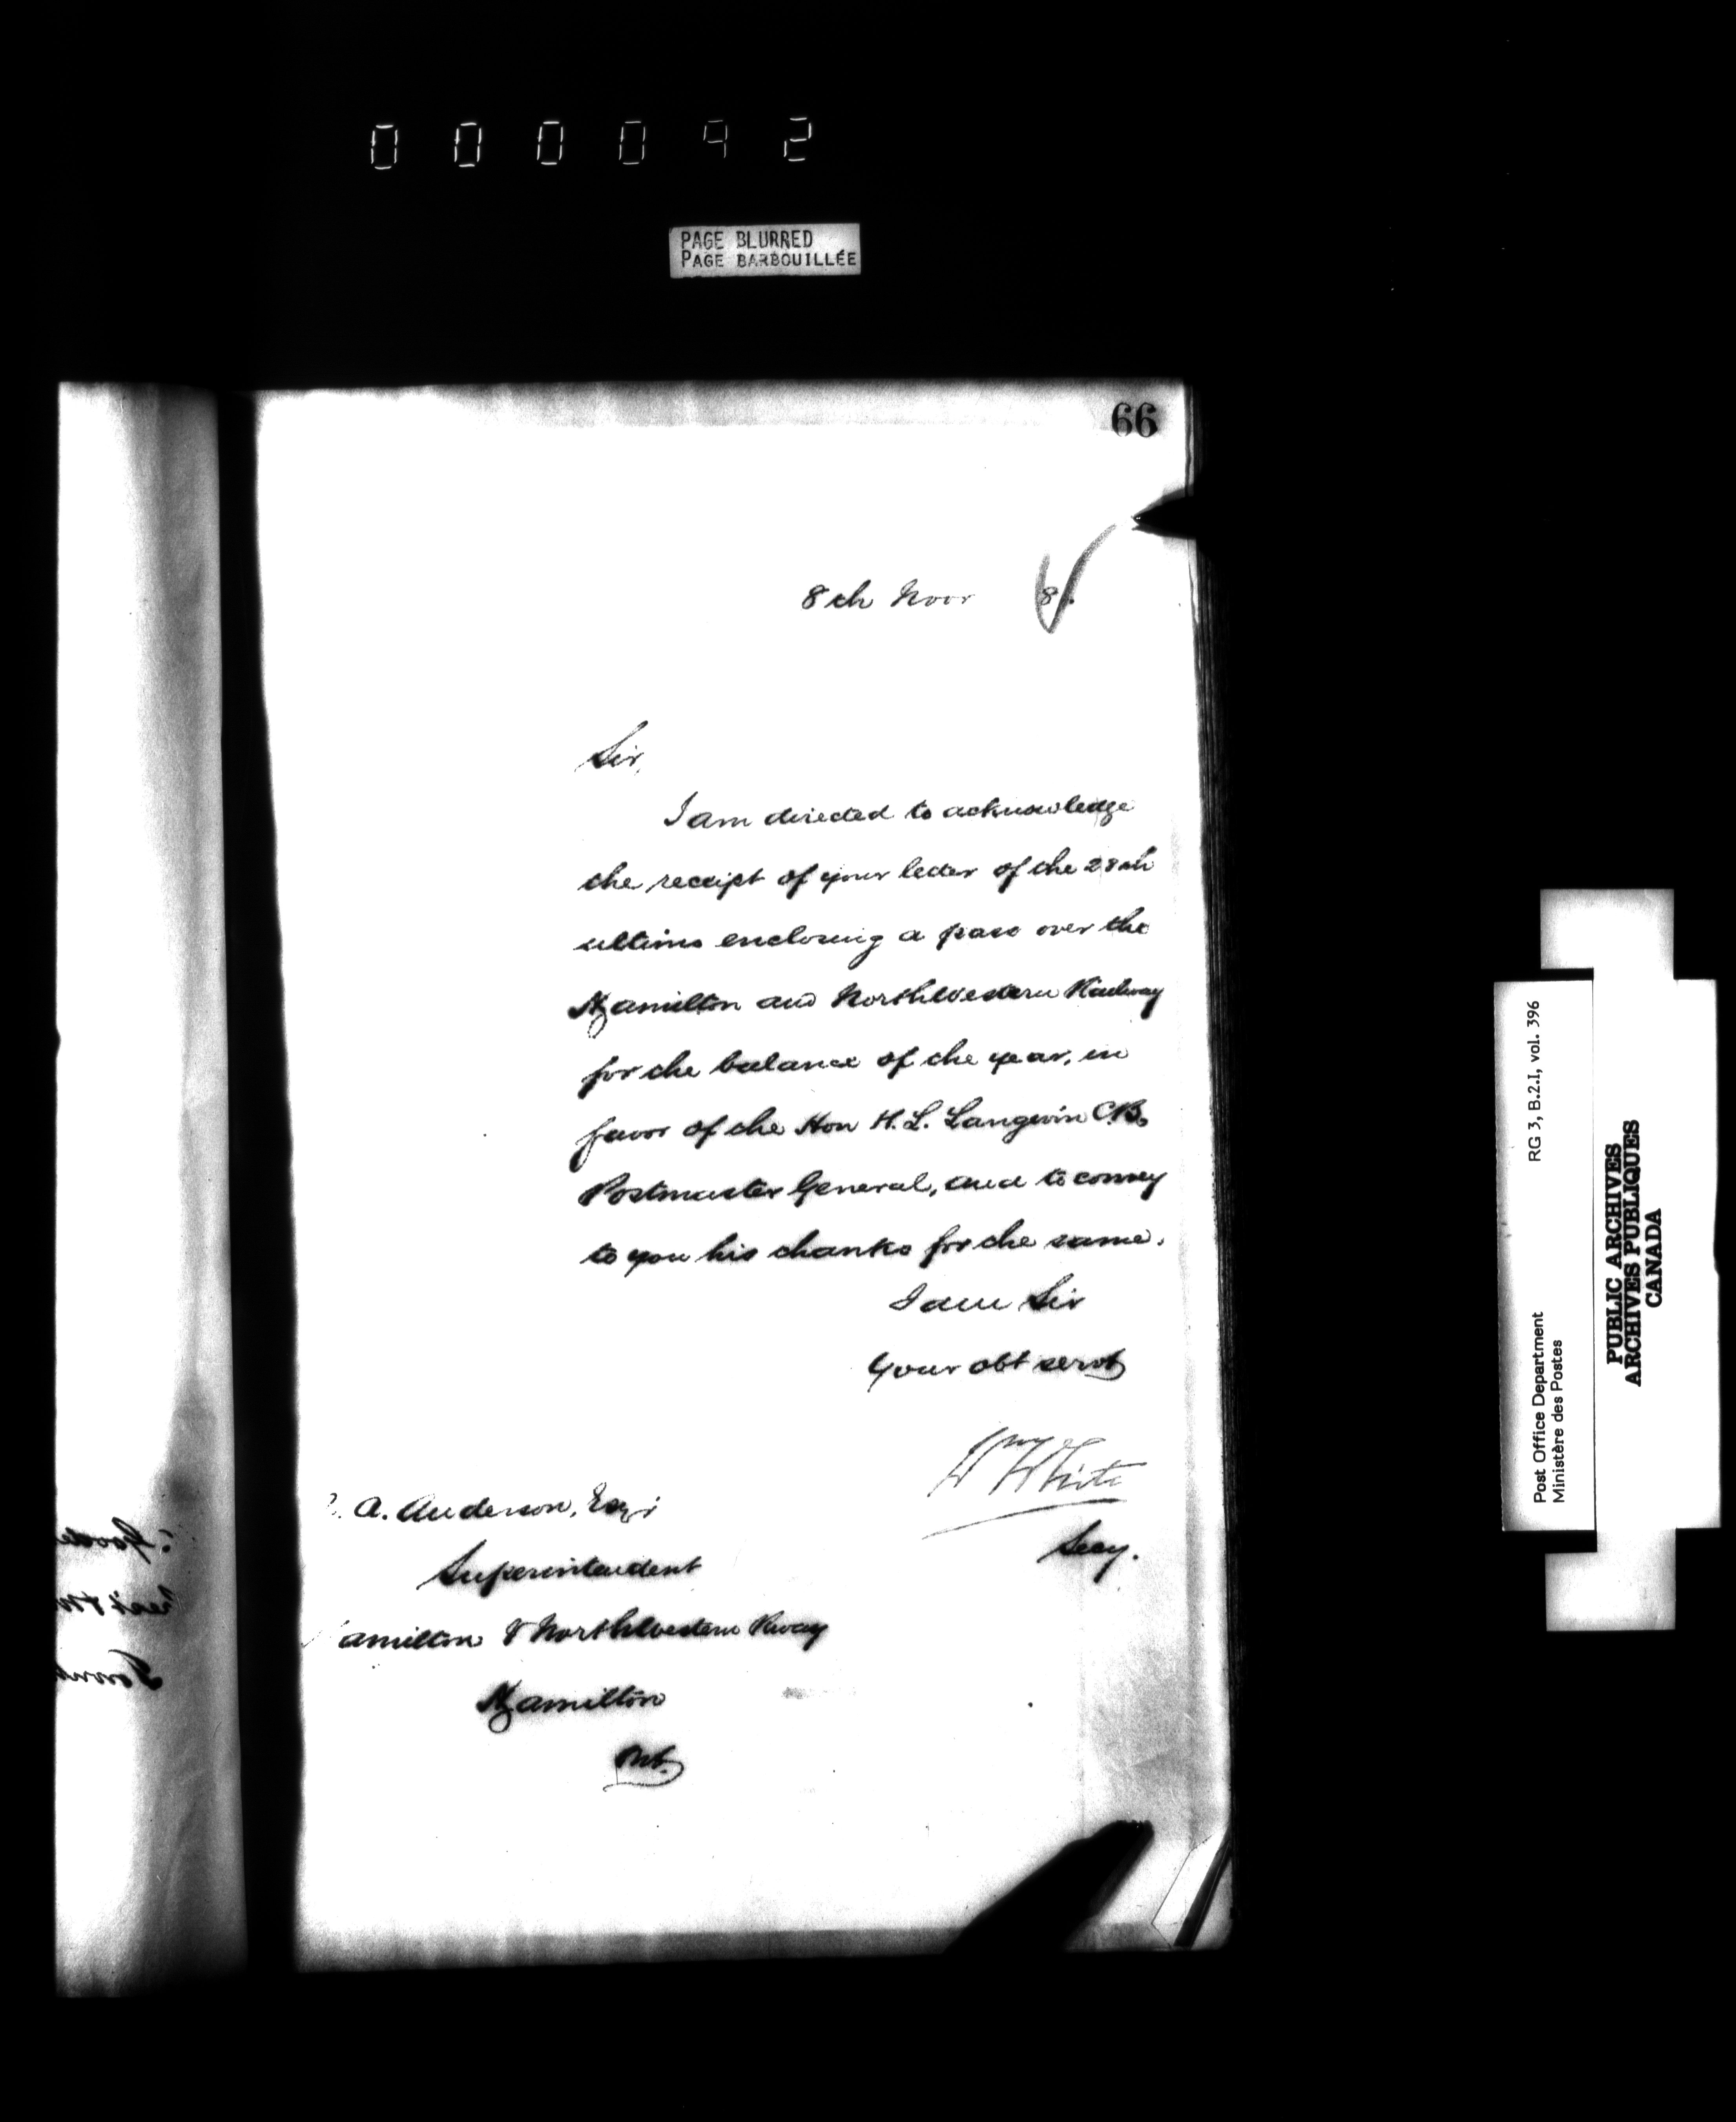 000092
PAGE BLURRED
PAGE BARBOUILLÉE
66
8th Novr 8
Sir,
I am directed to acknowledge
the receipt of your letter of the 28th
ultimo enclosing a pass over the
Hamilton and NorthWestern Railway
for the balance of the year, in
favor of the Hon H. L. Langevin C.B.
Postmaster General, and to convey
to you his thanks for the same.
I am Sir
Your obt servt
Wm White
Secy.
A. Anderson, Esqr
Superintendent
amilton & NorthWestern Rway
Hamilton
Ont.
RG 3, B.2.I, vol. 396
Post Office Department
Ministère des Postes
PUBLIC ARCHIVES
ARCHIVES PUBLIQUES
CANADA